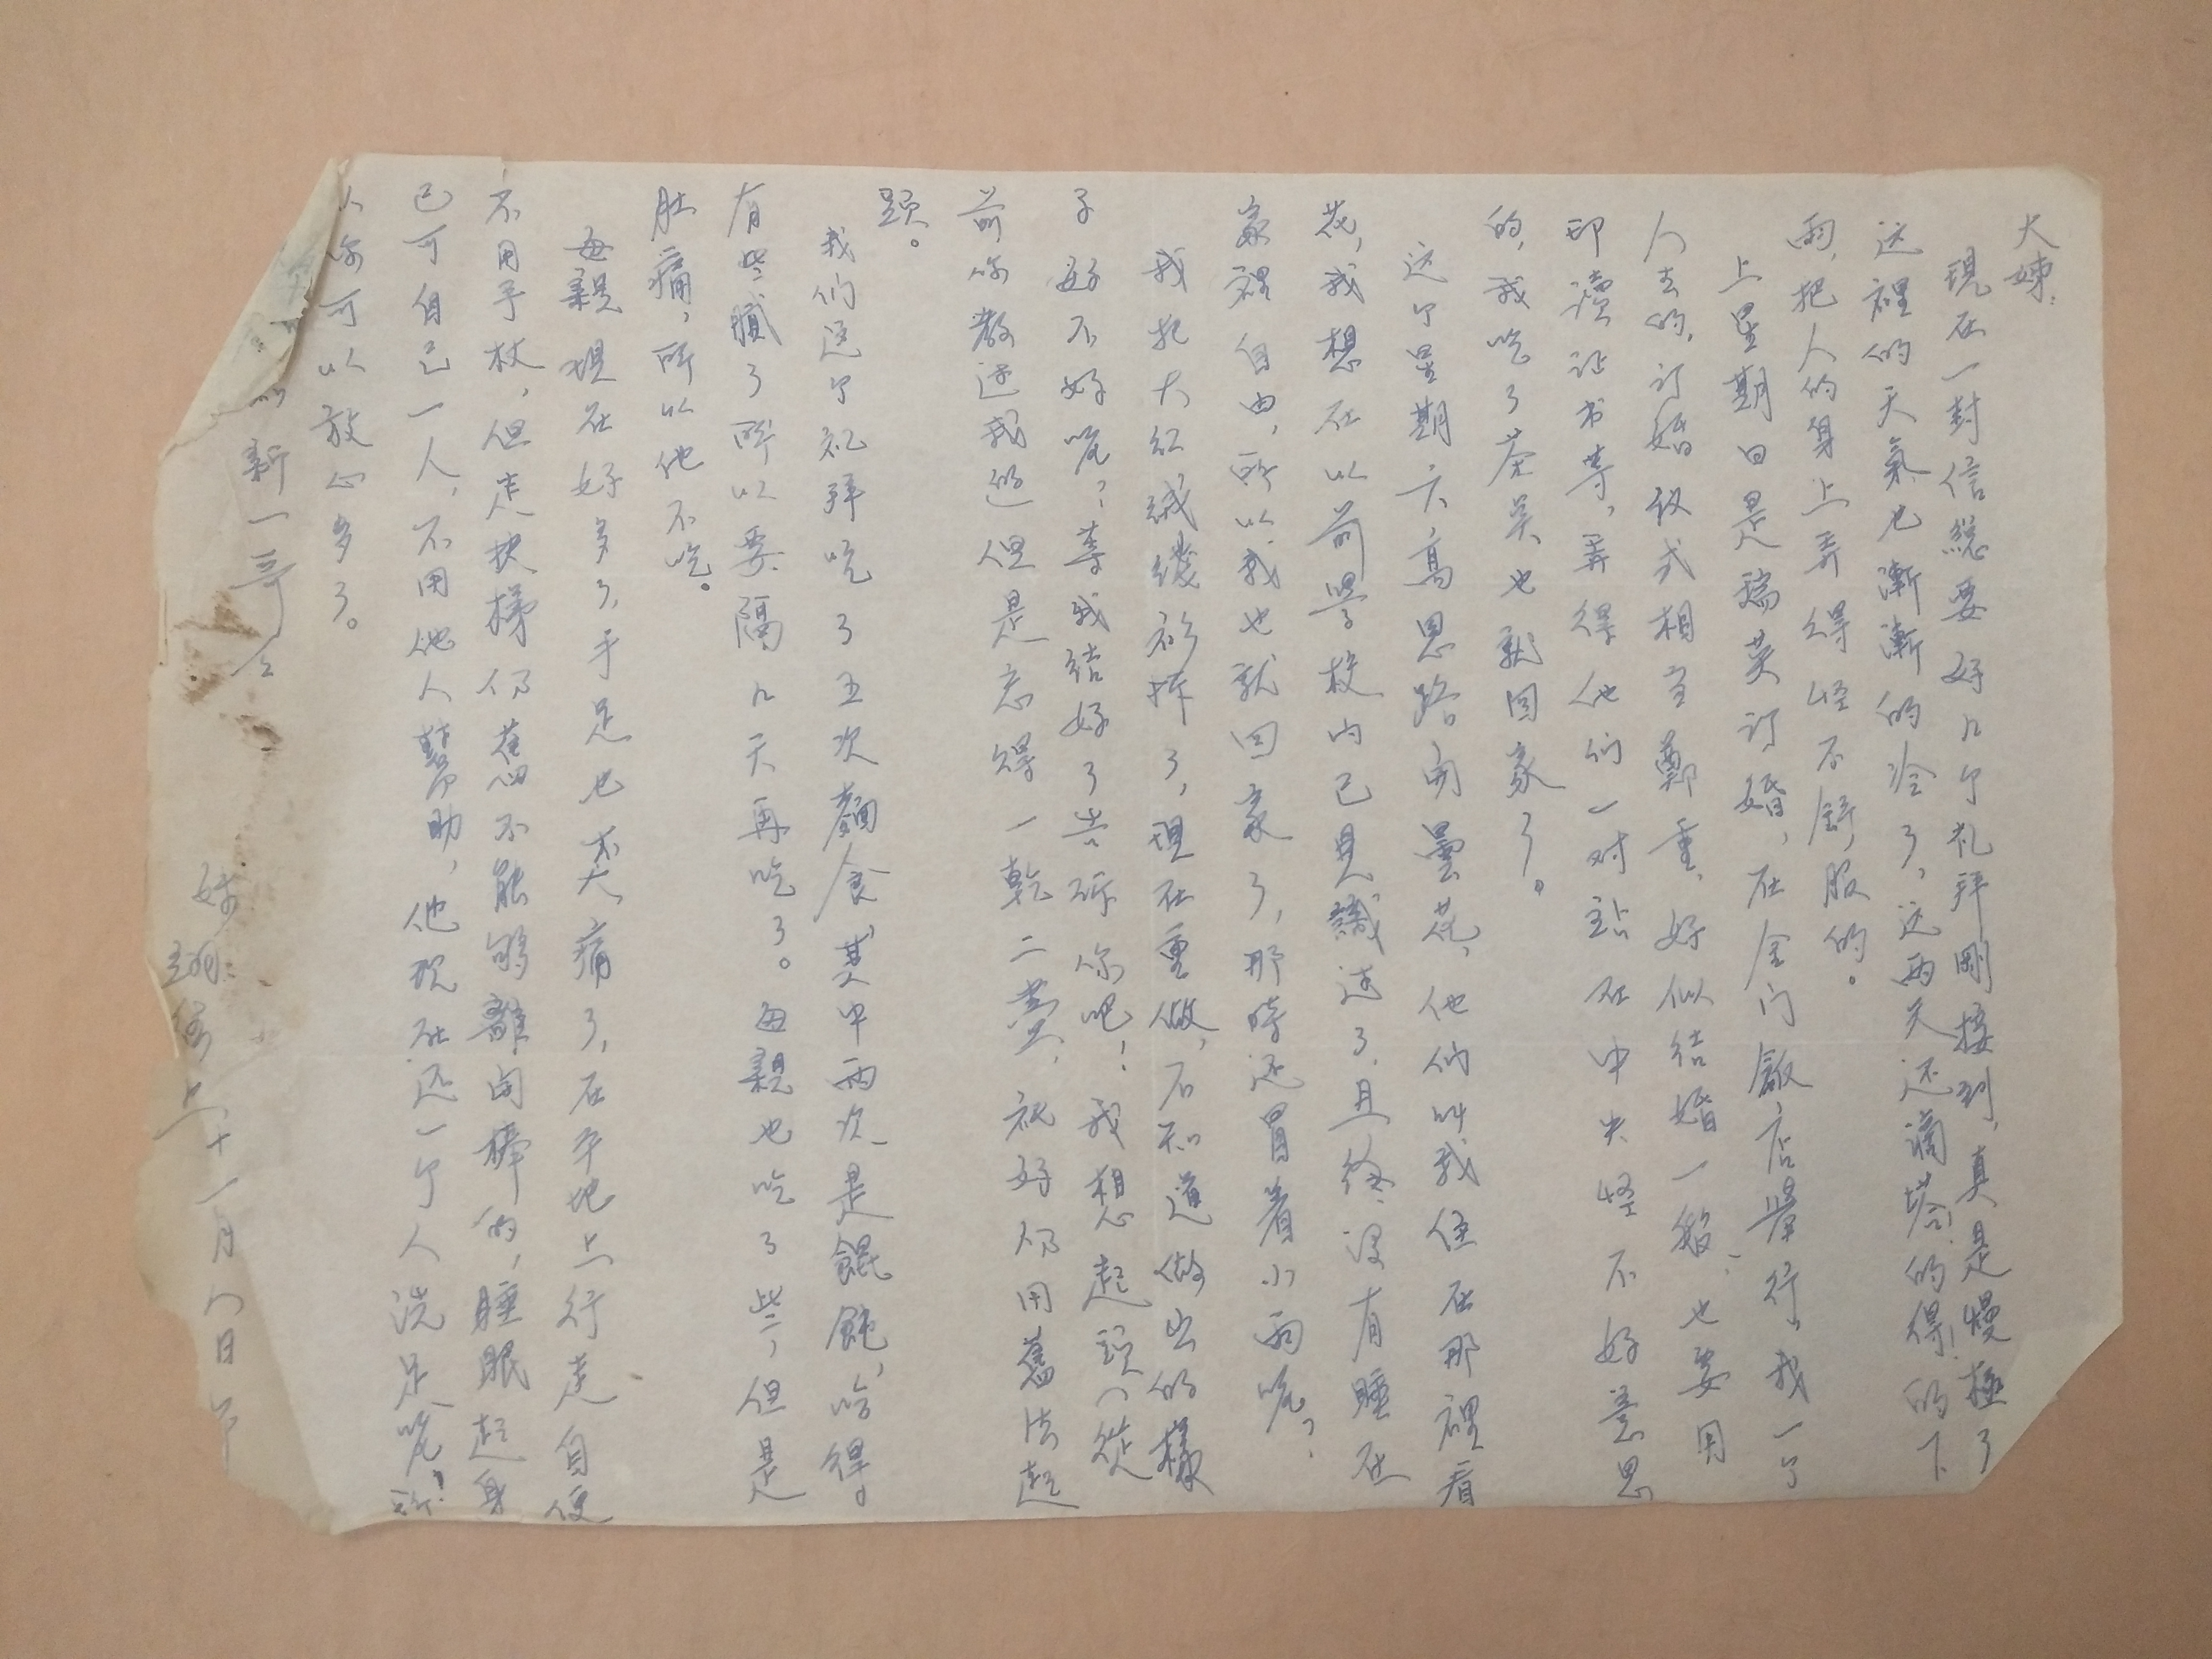 大姊：
現在一封信總要好几个礼拜剛接到，真是慢極了
这裡的天氣也漸漸的冷了，这两天还滴塔！的得！的下
雨，把人的身上弄得怪不舒服的。
上星期日是瑞英订婚，在金门飯店举行，我一个
人去的，订婚仪式相当鄭重，好似结婚一般，也要用
印读证书等，弄得他们一对站在中央怪不好意思
的，我吃了茶点也就回家了。
这个星期六，高恩路開曇花，他们叫我住在那裡看
花，我想在以前學校内已見識过了，且终没有睡在
家裡自由，所以我也就回家了，那時还冒着小雨呢？
我把大红绒线衫拆了，現在重做，不知道做出的樣
子好不好呢？等我结好了告诉你吧！我想起頭（從
前你教过我的）但是忘得一乾二淨，祇好仍用舊法起
題。
我们这个礼拜吃了五次麵食，其中两次是餛飩，哈得。
有些膩了所以要隔几天再吃了。母親也吃了些，但是
肚痛，所以他不吃。
母親現在好多了，手足也不大痛了，在平地上行走自便
不用手杖，但走扶梯仍舊不能够離開棒的，睡眠起身
已可自己一人，不用他人幫助，他现在还一个人洗足呢！所
以你可以放心多了。
新一哥
妹 上 十一月八日